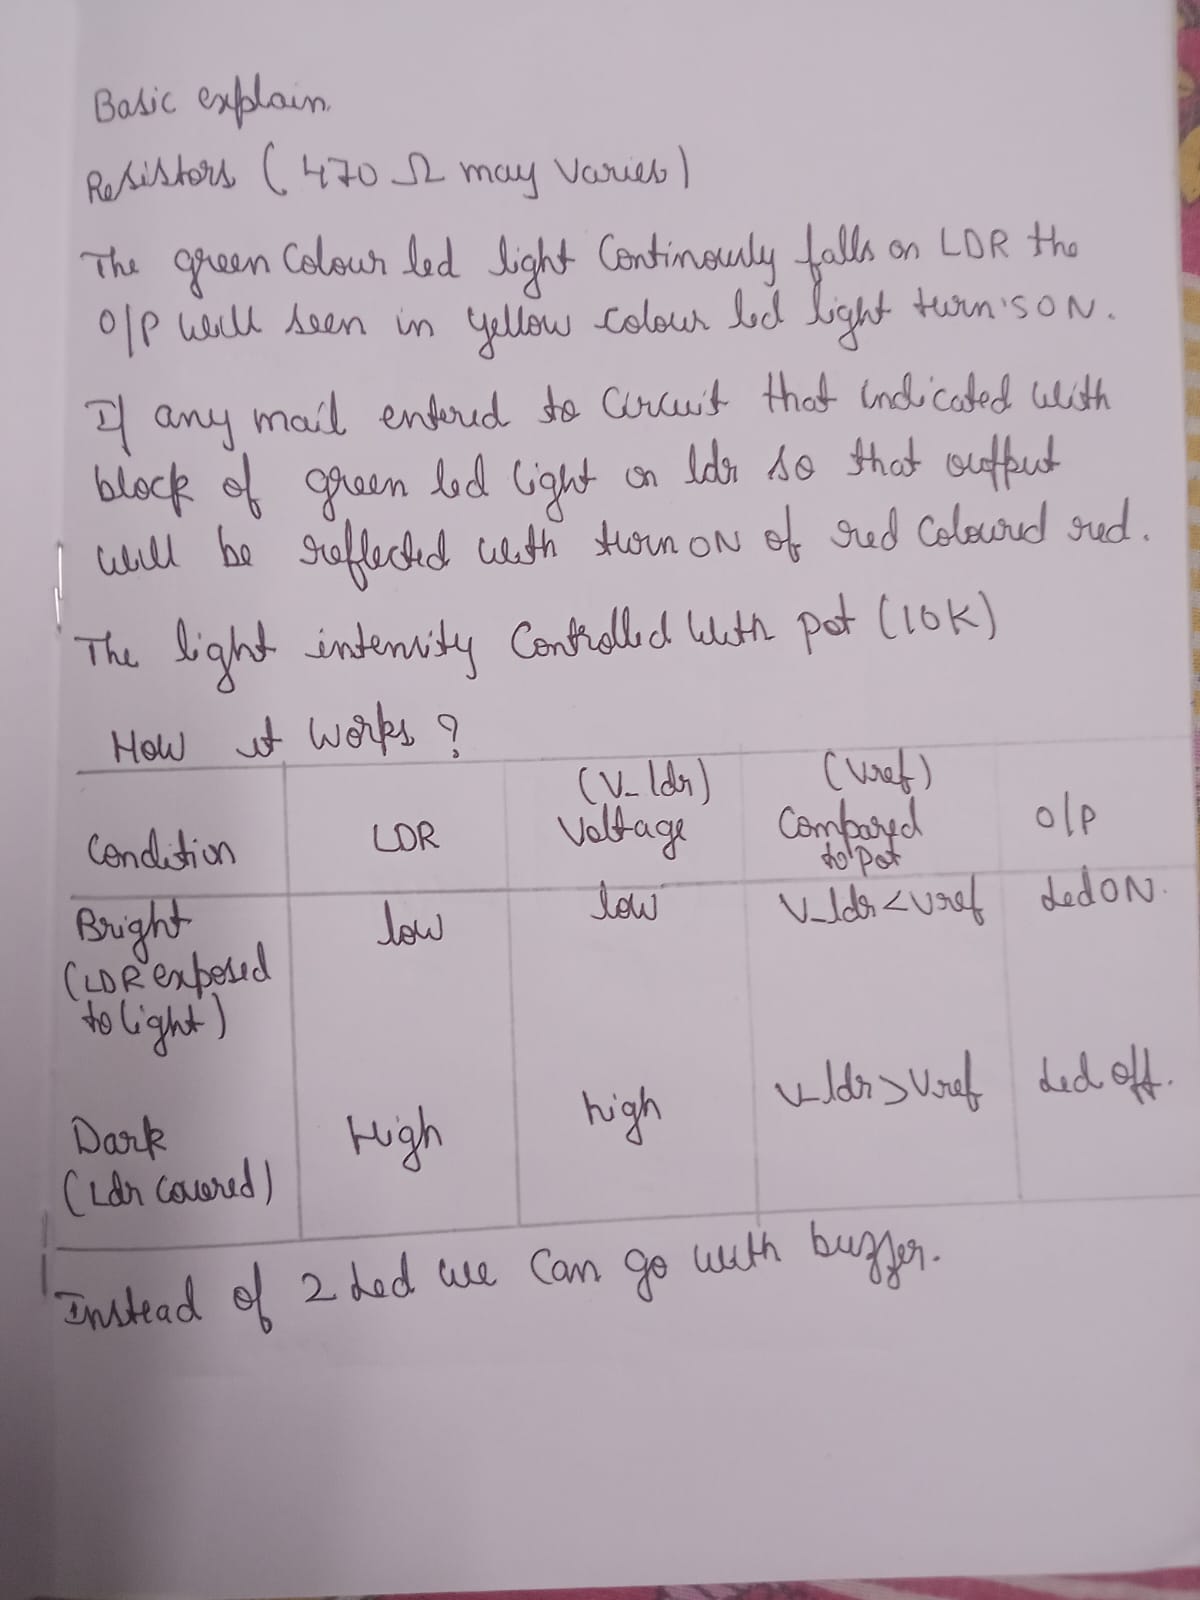 Basic explain.
Resistors (470 Ω may varies)
The green Colour led light Continously falls on LDR the
O/P will seen in yellow colour led light turn's ON.
If any mail entered to circuit that indicated with
block of green led light on ldr so that output
will be reflected with turn ON of red Coloured red.
The light intensity Controlled with pot (10K)
How it works?
Condition LDR (V_ldr) Voltage (Vref) Compared to pot O/P
Bright (LDR exposed to light) low low V_ldr < Vref Led ON.
Dark (Ldr covered) High high V_ldr > Vref Led off.
Instead of 2 Led we can go with buzzer.